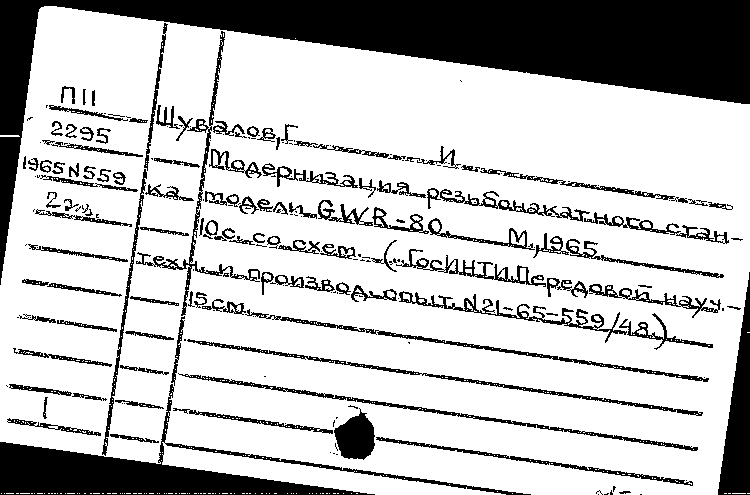 П11
2295
1965 N559
2 экз.
Шувалов, Г И.
Модернизация резьбонакатного стан-
ка модели GWR-80. М., 1965.
10 с. со схем. (...ГосИНТИ. Передовой науч.-
техн. и производ. опыт. N21-65-559/48.).
15 см.
1